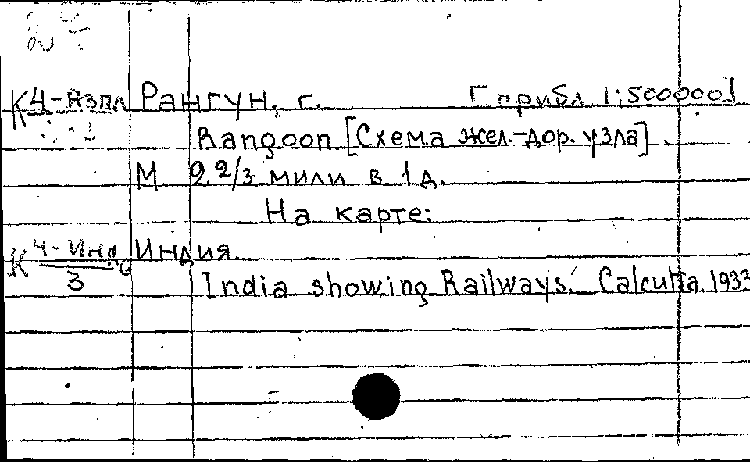 К4-Азпл Рангун, г. [прибл 1:500000]
Rangoon [Схема жел.-дор. узла].
М 2 2/3 мили в 1 д.
На карте:
К 4-Инд/3 Индия.
India showing Railways. Calcutta, 1933